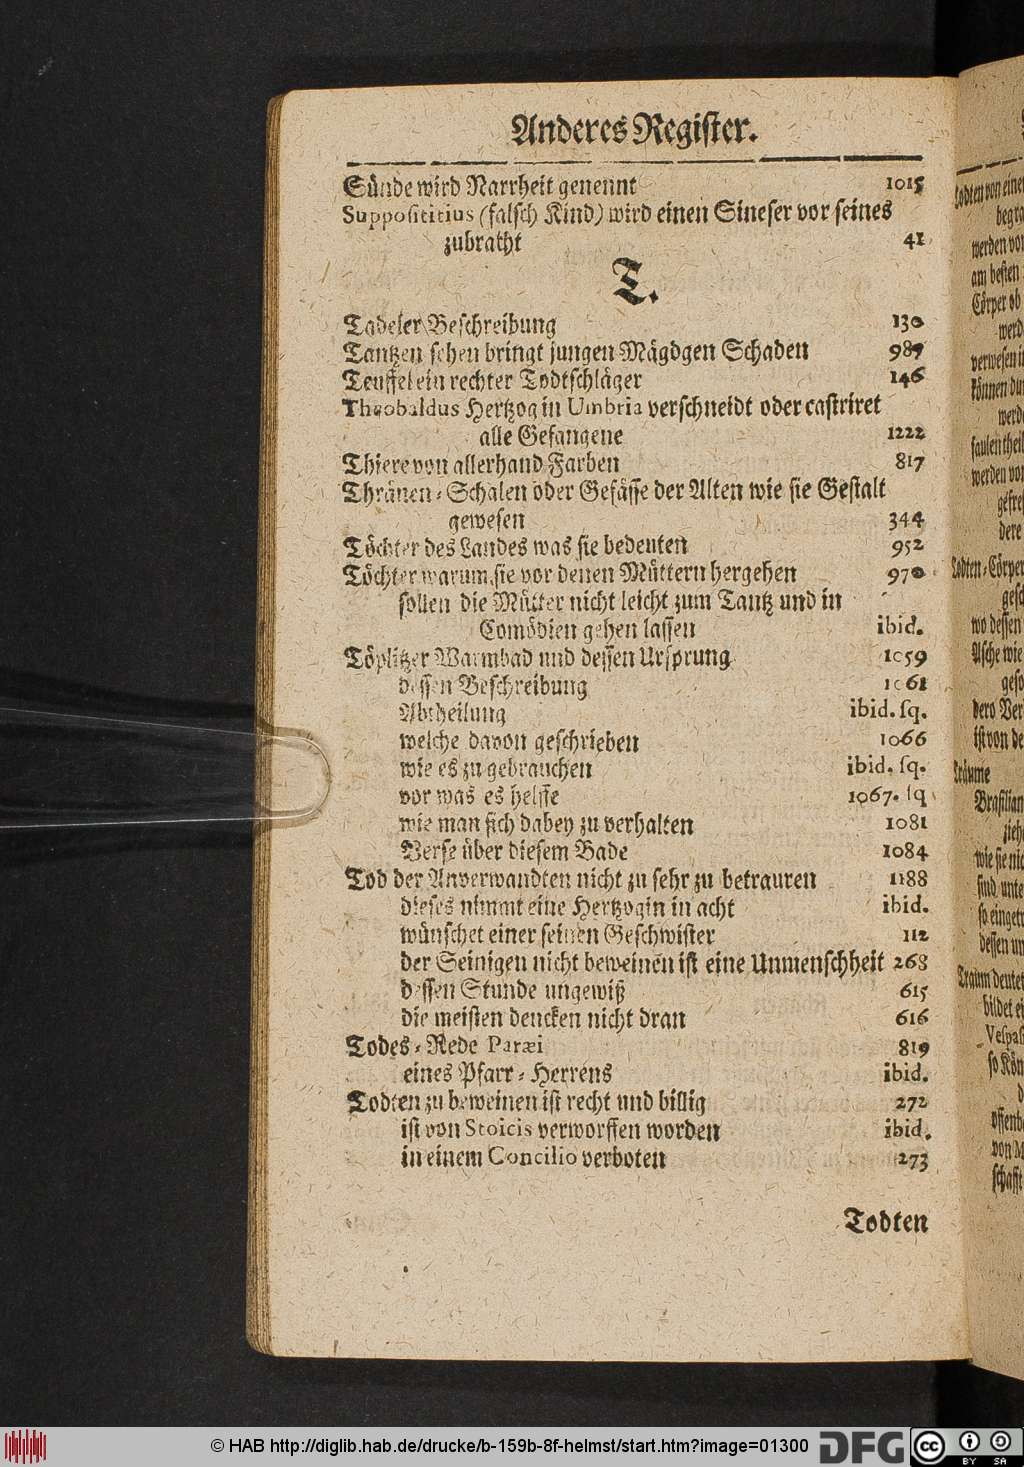 Anderes Register.
Sünde wird Narrheit genennt 1015
Supposititius (falsch Kind) wird einen Sineser vor seines
zubracht 41
T.
Tadeler Beschreibung 130
Tantzen sehen bringt jungen Mägdgen Schaden 987
Teuffel ein rechter Todtschläger 146
Theobaldus Hertzog in Umbria verschneidt oder castriret
alle Gefangene 1222
Thiere von allerhand Farben 817
Thränen-Schalen oder Gefässe der Alten wie sie Gestalt
gewesen 344
Töchter des Landes was sie bedeuten 952
Töchter warum sie vor denen Müttern hergehen 970
sollen die Mütter nicht leicht zum Tantz und in
Comödien gehen lassen ibid.
Töplitzer Warmbad und dessen Ursprung 1059
dessen Beschreibung 1061
Abtheilung ibid. sq.
welche davon geschrieben 1066
wie es zu gebrauchen ibid. sq.
vor was es helffe 1067. sq
wie man sich dabey zu verhalten 1081
Verse über diesem Bade 1084
Tod der Anverwandten nicht zu sehr zu betrauren 1188
dieses nimmt eine Hertzogin in acht ibid.
wünschet einer seinen Geschwister 112
der Seinigen nicht beweinen ist eine Unmenschheit 268
dessen Stunde ungewiß 615
die meisten dencken nicht dran 616
Todes-Rede Paræi 819
eines Pfarr-Herrens ibid.
Todten zu beweinen ist recht und billig 272
ist von Stoicis verworffen worden ibid.
in einem Concilio verboten 273
Todten
Todten von einer
begra
werden vor
am besten
Cörper ob
werd
verwesen i
können du
werde
faulen theil
werden vor
gefre
dere
Todten-Cörper
gesc
wo dessen
Asche wie
geso
dero Ver
ist von de
Träume
Brasilian
zieh
wie sie nic
sind unte
so eingetr
dessen un
Traum deutet
bildet ei
Vespasi
so Kön
d
offenb
von M
schafft
© HAB http://diglib.hab.de/drucke/b-159b-8f-helmst/start.htm?image=01300
DFG
cc
BY SA